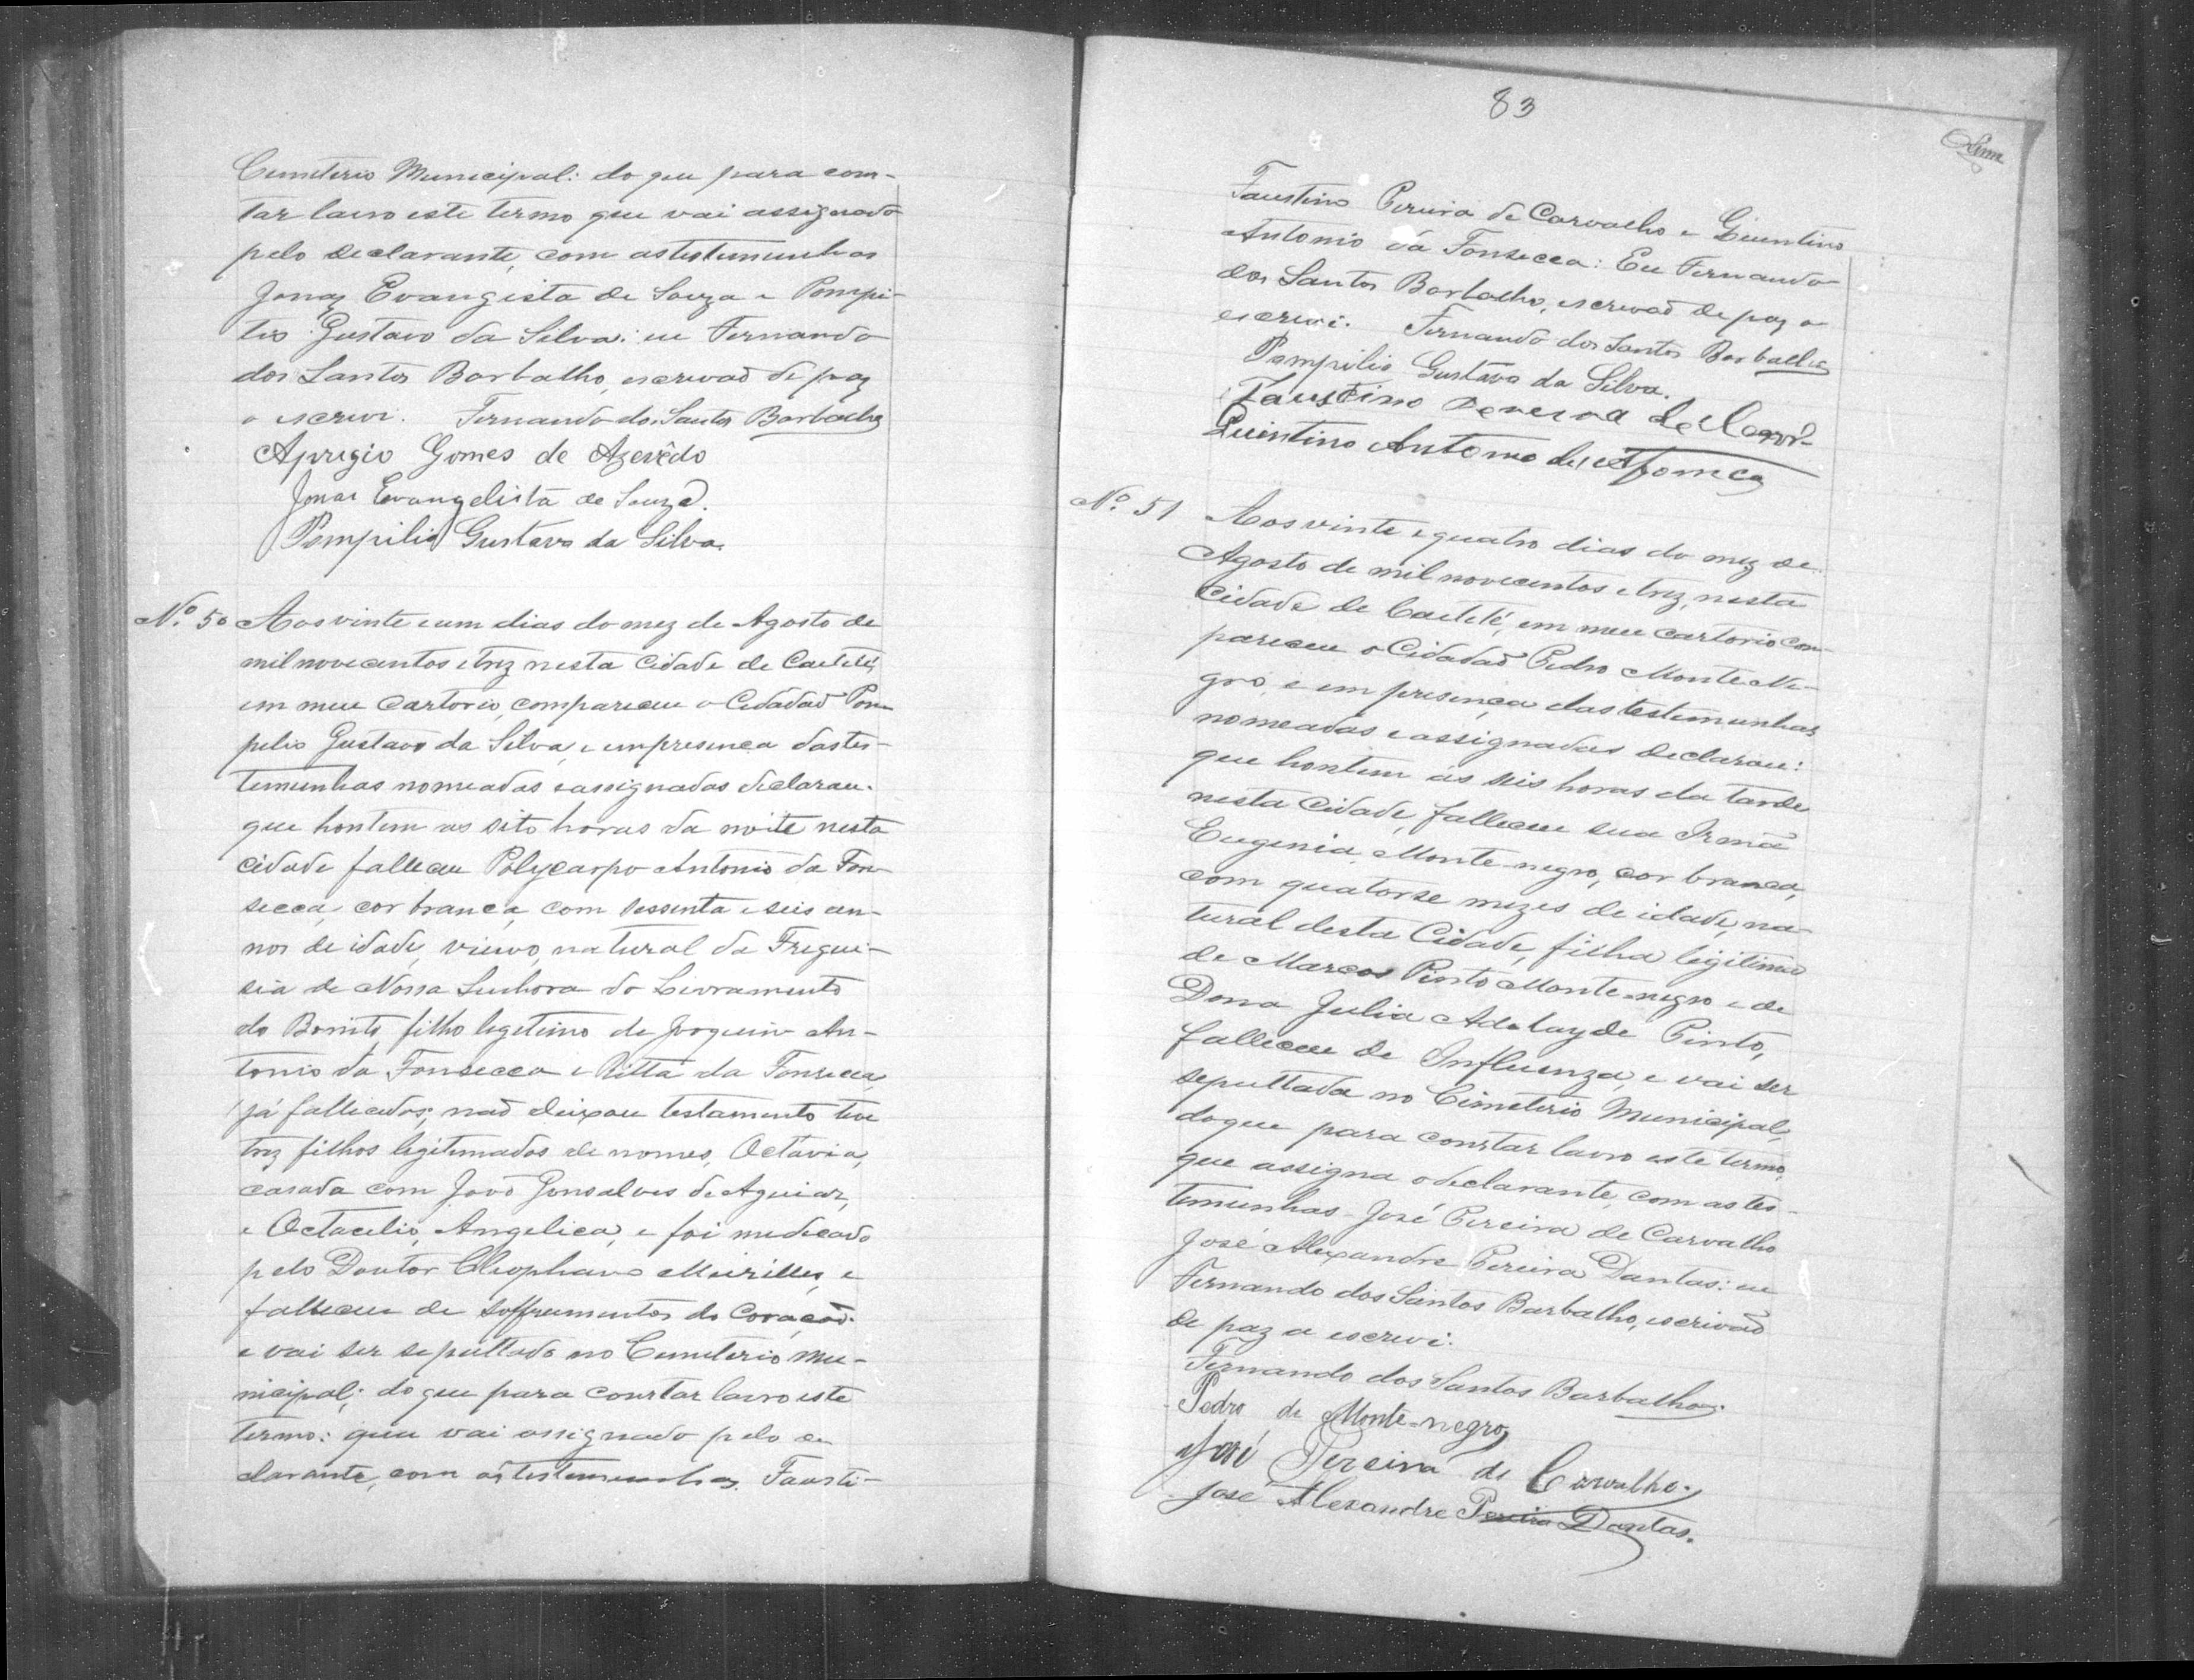 Cemiterio Municipal: do que para cons-
tar lavro este termo que vai assignado
pelo declarante, com as testemunhas
Jonas Evangista de Souza e Pompi-
lio Gustavo da Silva: eu Fernando
dos Santos Barbalho, escrivaõ de paz
o escrevi. Fernando dos Santos Barbalho
Aprigio Gomes de Azevêdo
Jonas Evangelista de Souza.
Pompilio Gustavo da Silva.
Nº 50 Aos vinte e um dias do mez de Agosto de
mil novecentos e trez nesta Cidade de Caeteté,
em meu Cartorio, compareceu o Cidadaõ Pom
pilio Gustavo da Silva, e em presença das tes-
temunhas nomeadas e assignadas declarou.
que hontem as oito horas da noite nesta
cidade falleceu Polycarpo Antonio da Fon-
secca, cor branca, com sessenta e seis an-
nos de idade, viuvo, natural da Fregue-
sia de Nossa Senhora do Livramento
do Bonito, filho legitimo de Joaquim An-
tonio da Fonsecca e Ritta da Fonsecca,
já fallecidos; naõ deixou testamento teve
trez filhos legitimados de nomes, Octavia,
casada com Joaõ Gonsalves de Aguiar,
e Octacilio, Angelica, e foi medicado
pelo Doutor Cleophano Meirilles, e
falleceu de soffrimentos do Coraçaõ.
e vai ser sepultado no Cemiterio Mu-
nicipal; do que para constar lavro este
termo: que vai assignado pelo de
clarante, com as testemunhas. Fausti-
83
Faustino Pereira de Carvalho e Quintino
Antonio da Fonsecca: Eu Fernando
dos Santos Barbalho, escrivaõ de paz o
escrevi. Fernando dos Santos Barbalho
Pompilio Gustavo da Silva.
Faustino Pereira de Carv.
Quintino Antonio da Fonca
Nº 51 Aos vinte e quatro dias do mez de
Agosto de mil novecentos e trez, nesta
Cidade de Caeteté, em meu cartorio com-
pareceu o Cidadaõ Pedro Monte Ne-
gro, e em presença das testemunhas
nomeadas e assignadas declarou:
que hontem ás seis horas da tarde
nesta Cidade, falleceu sua Irmã
Eugenia Monte-negro, cor branca,
com quatorse mezes de idade, na-
tural desta Cidade, filha legitima
de Marcos Pinto Monte-negro e de
Dona Julia Adelayde Pinto,
falleceu de Influenza, e vai ser
sepultada no Cimeterio Municipal,
do que para constar lavro este termo,
que assigna o declarante, com as tes-
temunhas José Pereira de Carvalho
José Alexandre Pereira Dantas: eu
Fernando dos Santos Barbalho, escrivaõ
de paz o escrevi.
Fernando dos Santos Barbalho.
Pedro de Monte-negro
José Pereira de Carvalho.
José Alexandre Pereira Dantas.